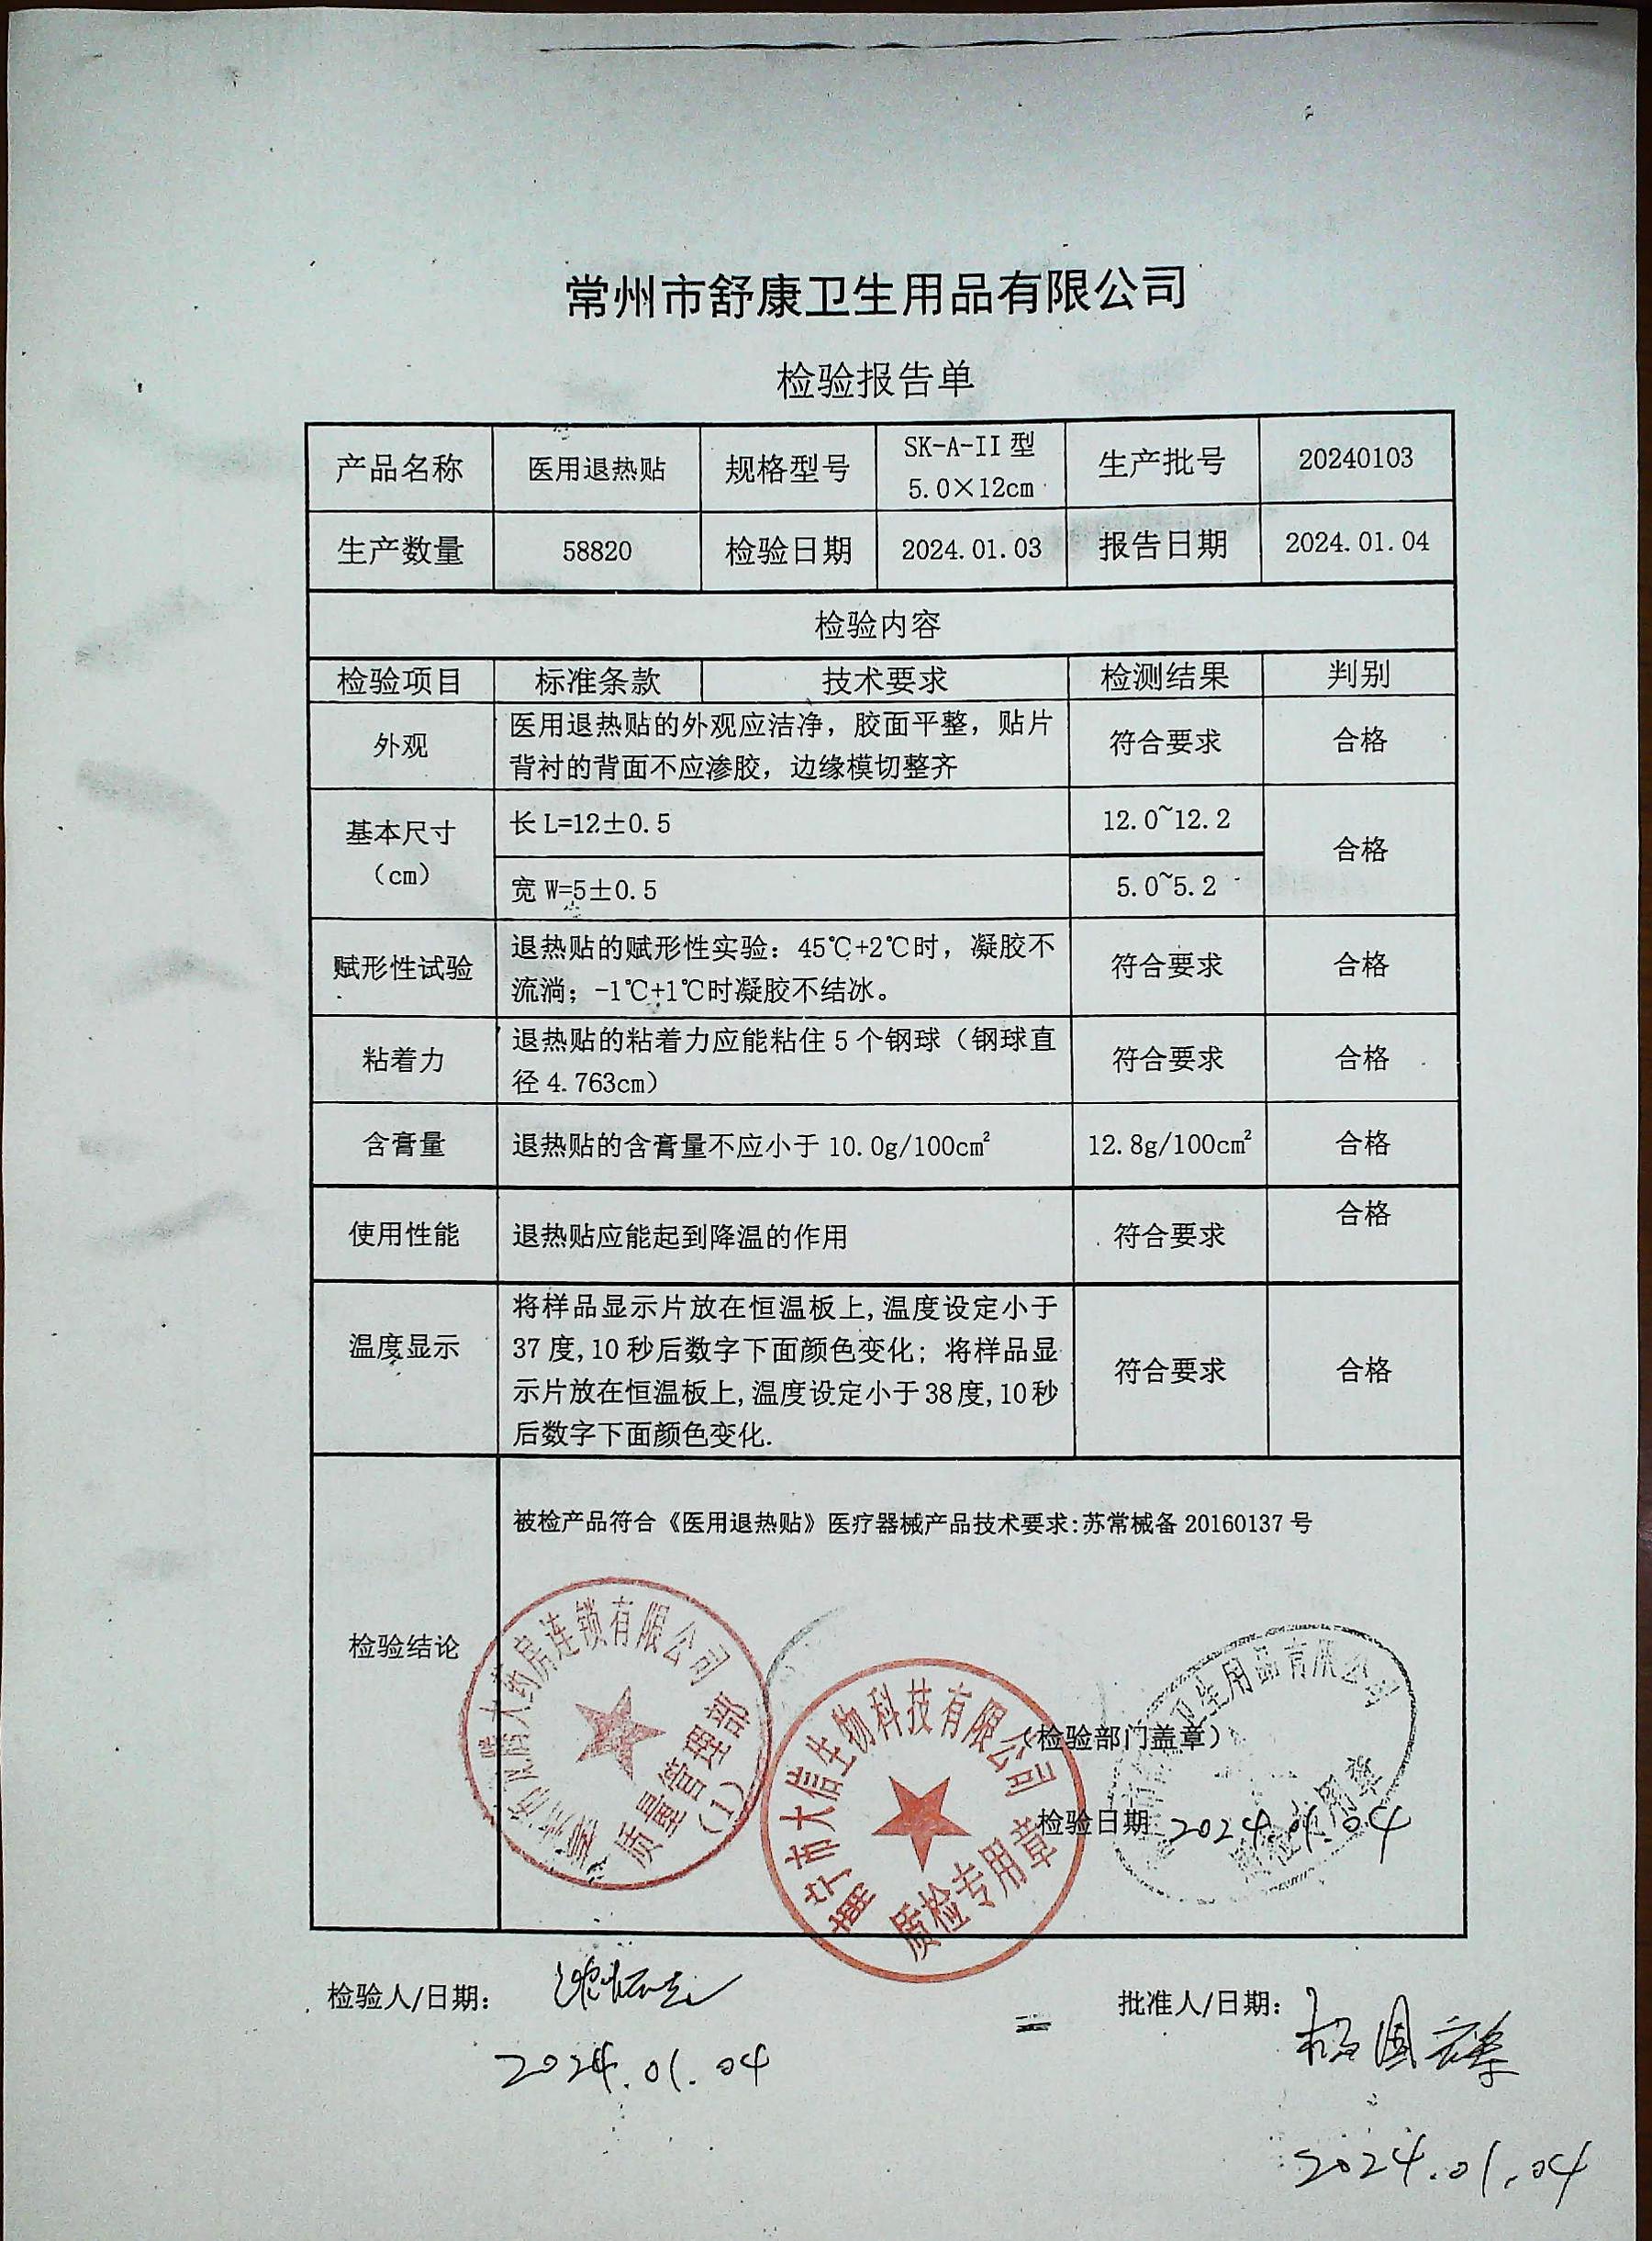 常州市舒康卫生用品有限公司
检验报告单
产品名称 医用退热贴 规格型号 SK-A-II 型 5.0×12cm 生产批号 20240103
生产数量 58820 检验日期 2024.01.03 报告日期 2024.01.04
检验内容
检验项目 标准条款 技术要求 检测结果 判别
外观 医用退热贴的外观应洁净，胶面平整，贴片 符合要求 合格
背衬的背面不应渗胶，边缘模切整齐
基本尺寸
（cm）
长 L=12±0.5 12.0~12.2 合格
宽 W=5±0.5 5.0~5.2
赋形性试验 退热贴的赋形性实验：45℃+2℃时，凝胶不 符合要求 合格
流淌；-1℃+1℃时凝胶不结冰。
粘着力 退热贴的粘着力应能粘住 5 个钢球（钢球直 符合要求 合格
径 4.763cm）
含膏量 退热贴的含膏量不应小于 10.0g/100cm² 12.8g/100cm² 合格
使用性能 退热贴应能起到降温的作用 符合要求 合格
温度显示 将样品显示片放在恒温板上,温度设定小于 符合要求 合格
37 度,10 秒后数字下面颜色变化；将样品显
示片放在恒温板上,温度设定小于 38 度,10 秒
后数字下面颜色变化.
检验结论
被检产品符合《医用退热贴》医疗器械产品技术要求:苏常械备 20160137 号
大药房连锁有限公司
质量管理部
(1)
市大信生物科技有限公司
质检专用章
卫生用品有限公司
用章
（检验部门盖章）
检验日期 2024.01.04
检验人/日期：
2024.01.04
批准人/日期：
2024.01.04